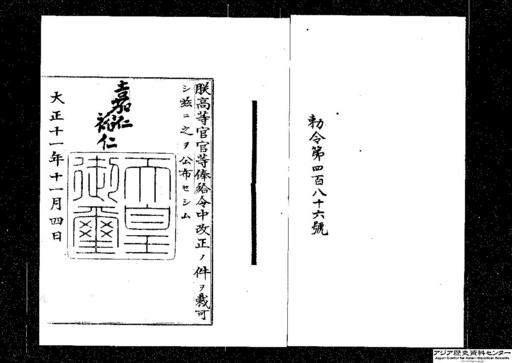 勅令第四百八十六號
朕高等官官等俸給令中改正ノ件ヲ裁可
シ茲ニ之ヲ公布セシム
嘉仁
裕仁
天皇
御璽
大正十一年十一月四日
アジア歴史資料センター
Japan Center for Asian Historical Records